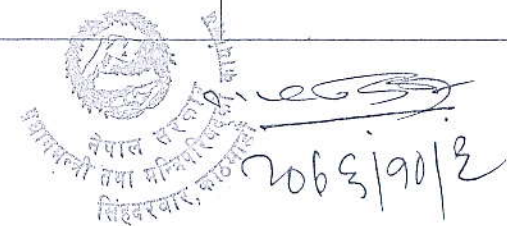 नेपाल सरकार
प्रधानमन्त्री तथा मन्त्रिपरिषद्को
सिंहदरवार, काठमाडौं
२०७६|१०|६